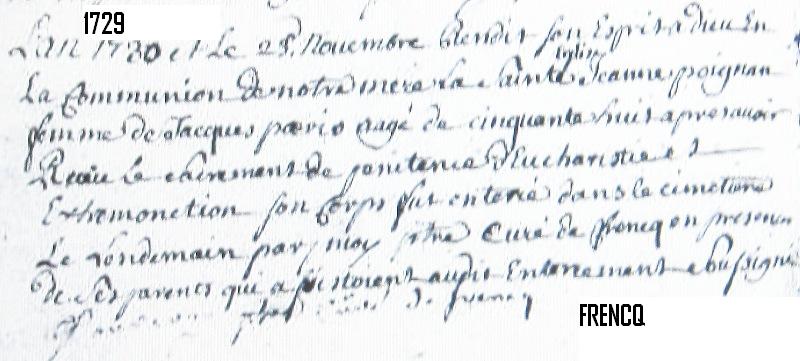 1729
L'an 1730 et le 28e Novembre Rendit son Esprit a dieu En
La Communion de notre mere la Sainte Eglise Jeanne poignan
femme de Jacques pario aagé de cinquante huit apres avoir
Receu le sacrement de penitence d'Eucharistie et
Extremonction son Corps fut enterré dans le cimetiere
Le lendemain par moy ptre Curé de frencq en presence
de ses parents qui assistoient audit Enterrement soussigné
de frencq
FRENCQ